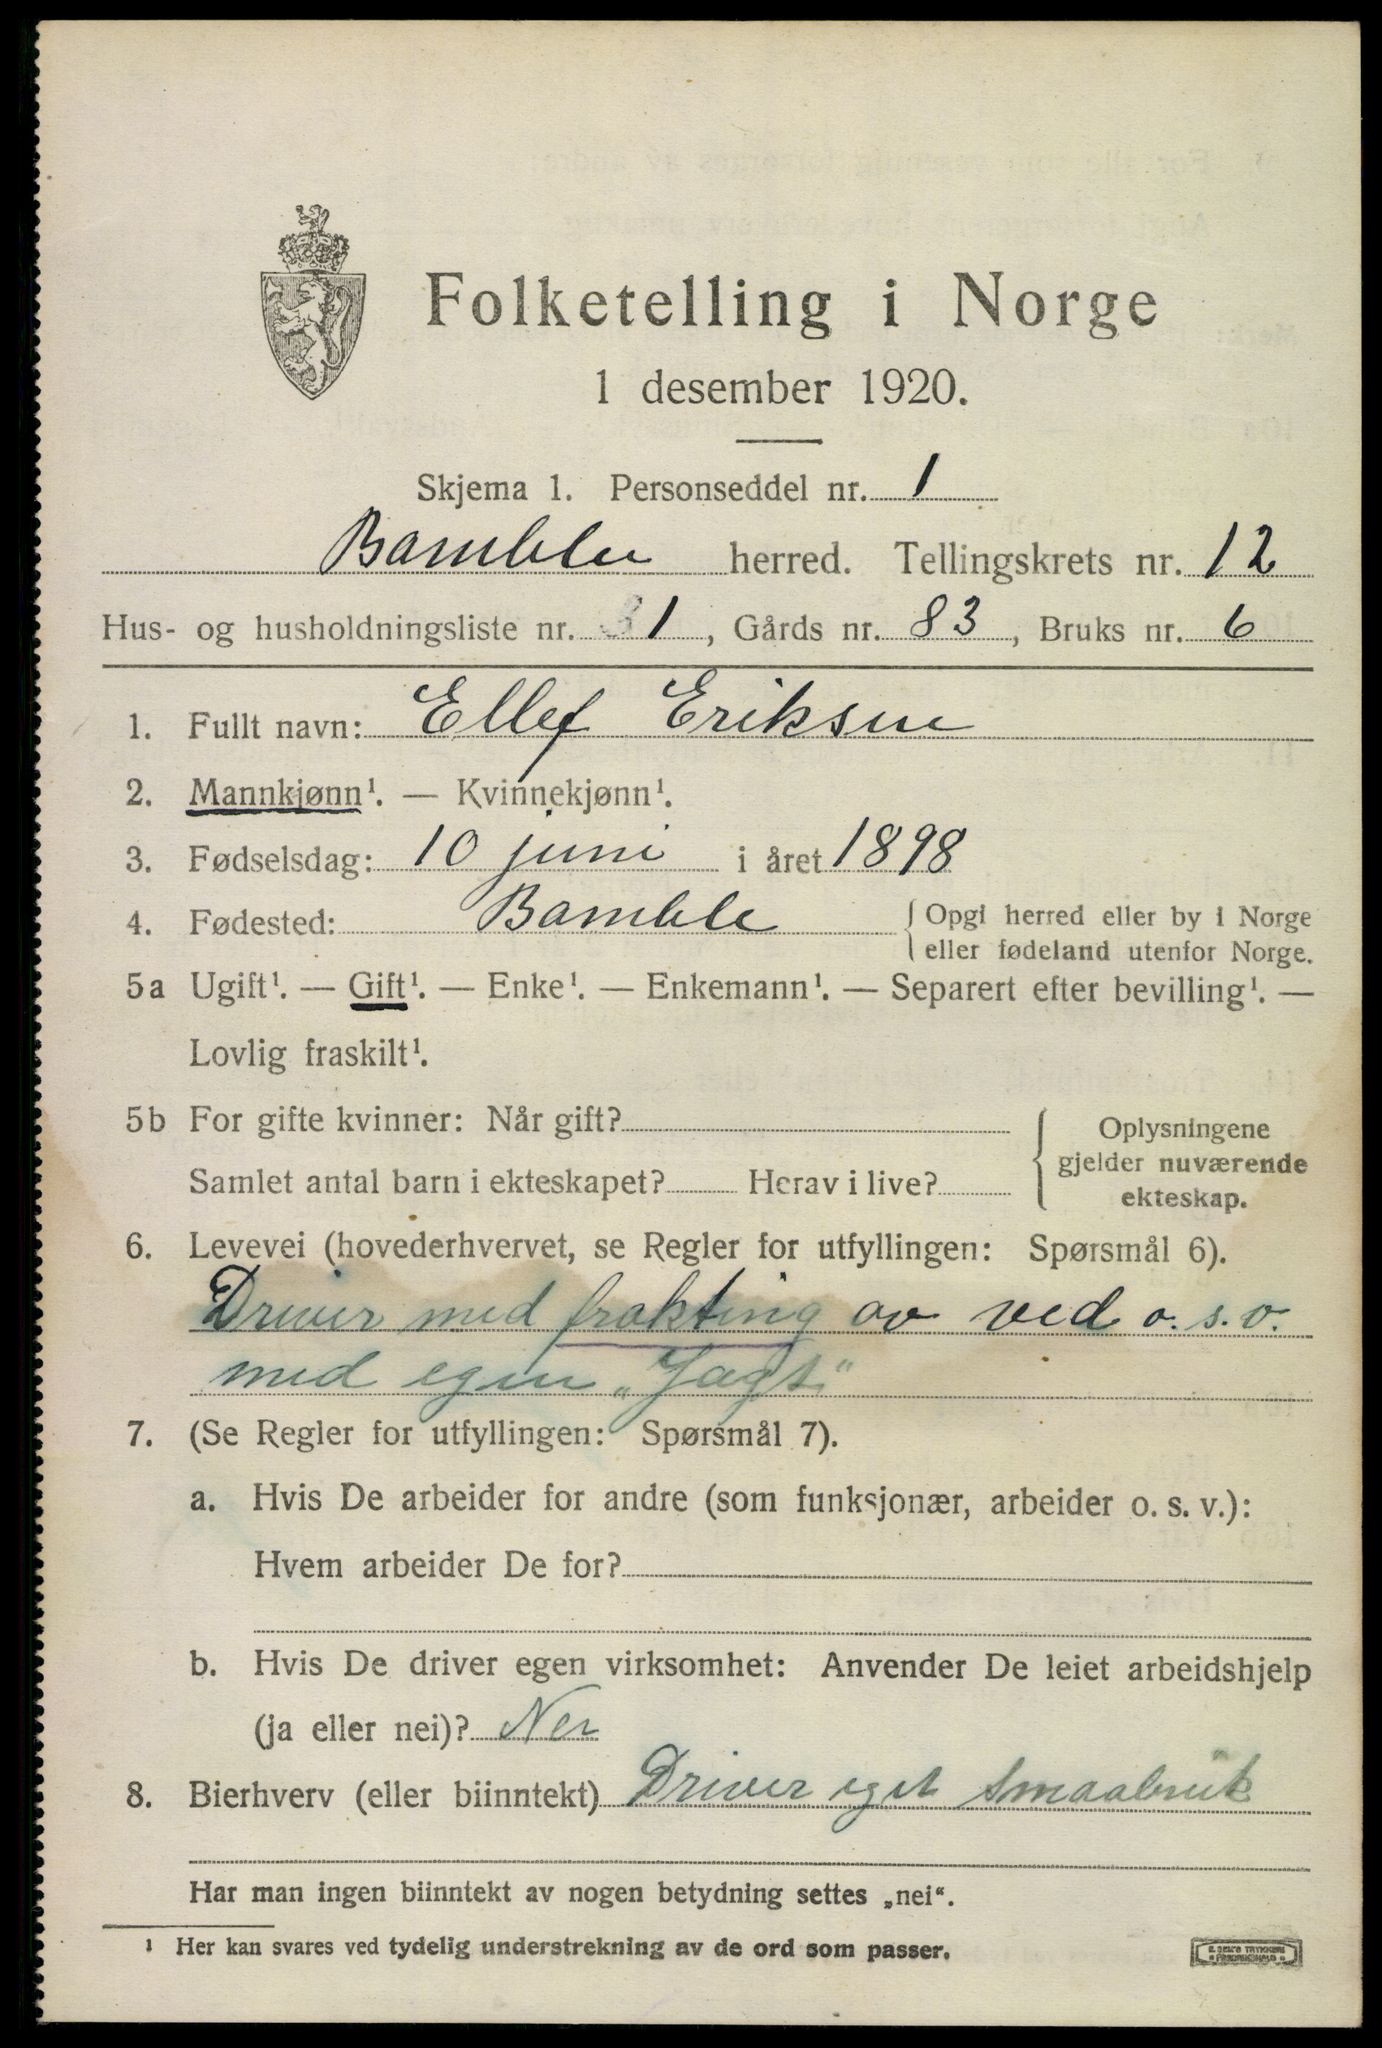 Folketelling i Norge
1 desember 1920.
Skjema 1. Personseddel nr. 1
Bamble herred. Tellingskrets nr. 12
Hus- og husholdningsliste nr. 31, Gårds nr. 83, Bruks nr. 6
1. Fullt navn: Ellef Eriksen
2. Mannkjønn¹. — Kvinnekjønn¹.
3. Fødselsdag: 10 juni i året 1898
4. Fødested: Bamble { Opgi herred eller by i Norge
eller fødeland utenfor Norge.
5a Ugift¹. — Gift¹. — Enke¹. — Enkemann¹. — Separert efter bevilling¹. —
Lovlig fraskilt¹.
5b For gifte kvinner: Når gift?
Samlet antal barn i ekteskapet? Herav i live?
{ Oplysningene
gjelder nuværende
ekteskap.
6. Levevei (hovederhvervet, se Regler for utfyllingen: Spørsmål 6).
Driver med frakting av ved o. s. v.
med egen „Jagt"
7. (Se Regler for utfyllingen: Spørsmål 7).
a. Hvis De arbeider for andre (som funksjonær, arbeider o. s. v.):
Hvem arbeider De for?
b. Hvis De driver egen virksomhet: Anvender De leiet arbeidshjelp
(ja eller nei)? Nei
8. Bierhverv (eller biinntekt) Driver eget smaabruk
Har man ingen biinntekt av nogen betydning settes „nei".
¹ Her kan svares ved tydelig understrekning av de ord som passer.